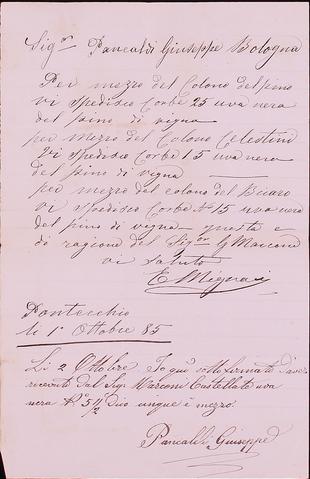 Sig.or Pancaldi Giuseppe Bologna
Per mezzo del Colono del pino
vi spedisco Corbe 25 uva nera
del pino di vigna
per mezzo del Colono Celestini
Vi spedisco Corbe 15 uva nera
del pino di vigna
per mezzo del colono del Buaro
vi spedisco Corbe N 15 uva nera
del pino di vigna questa e
di ragione del Sig.or G Marconi
vi saluto
E Mignani
Pontecchio
li 1° Ottobre 85
Li 2 Ottobre Io qui sotto firmato d'aver
ricevuto dal Sig. Marconi Castellate uva
nera N.° 5 1/2 Dico cinque e mezzo.
Pancaldi Giuseppe